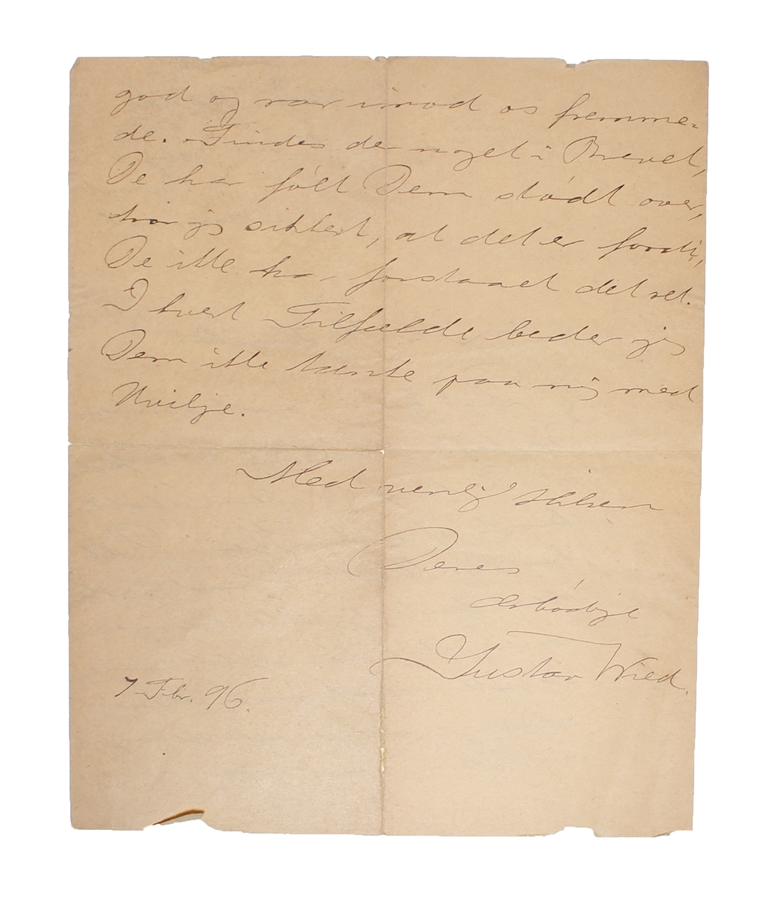 god og rar imod os fremme-
de. Findes der noget i Brevet,
De har følt Dem stødt over,
tror jeg sikkert, at det er fordi,
De ikke har forstaaet det ret.
I hvert Tilfælde beder jeg
Dem ikke tænke paa mig med
Uvilje.
Med venlig Hilsen
Deres
ærbødige
Gustav Wied.
7 Febr. 96.